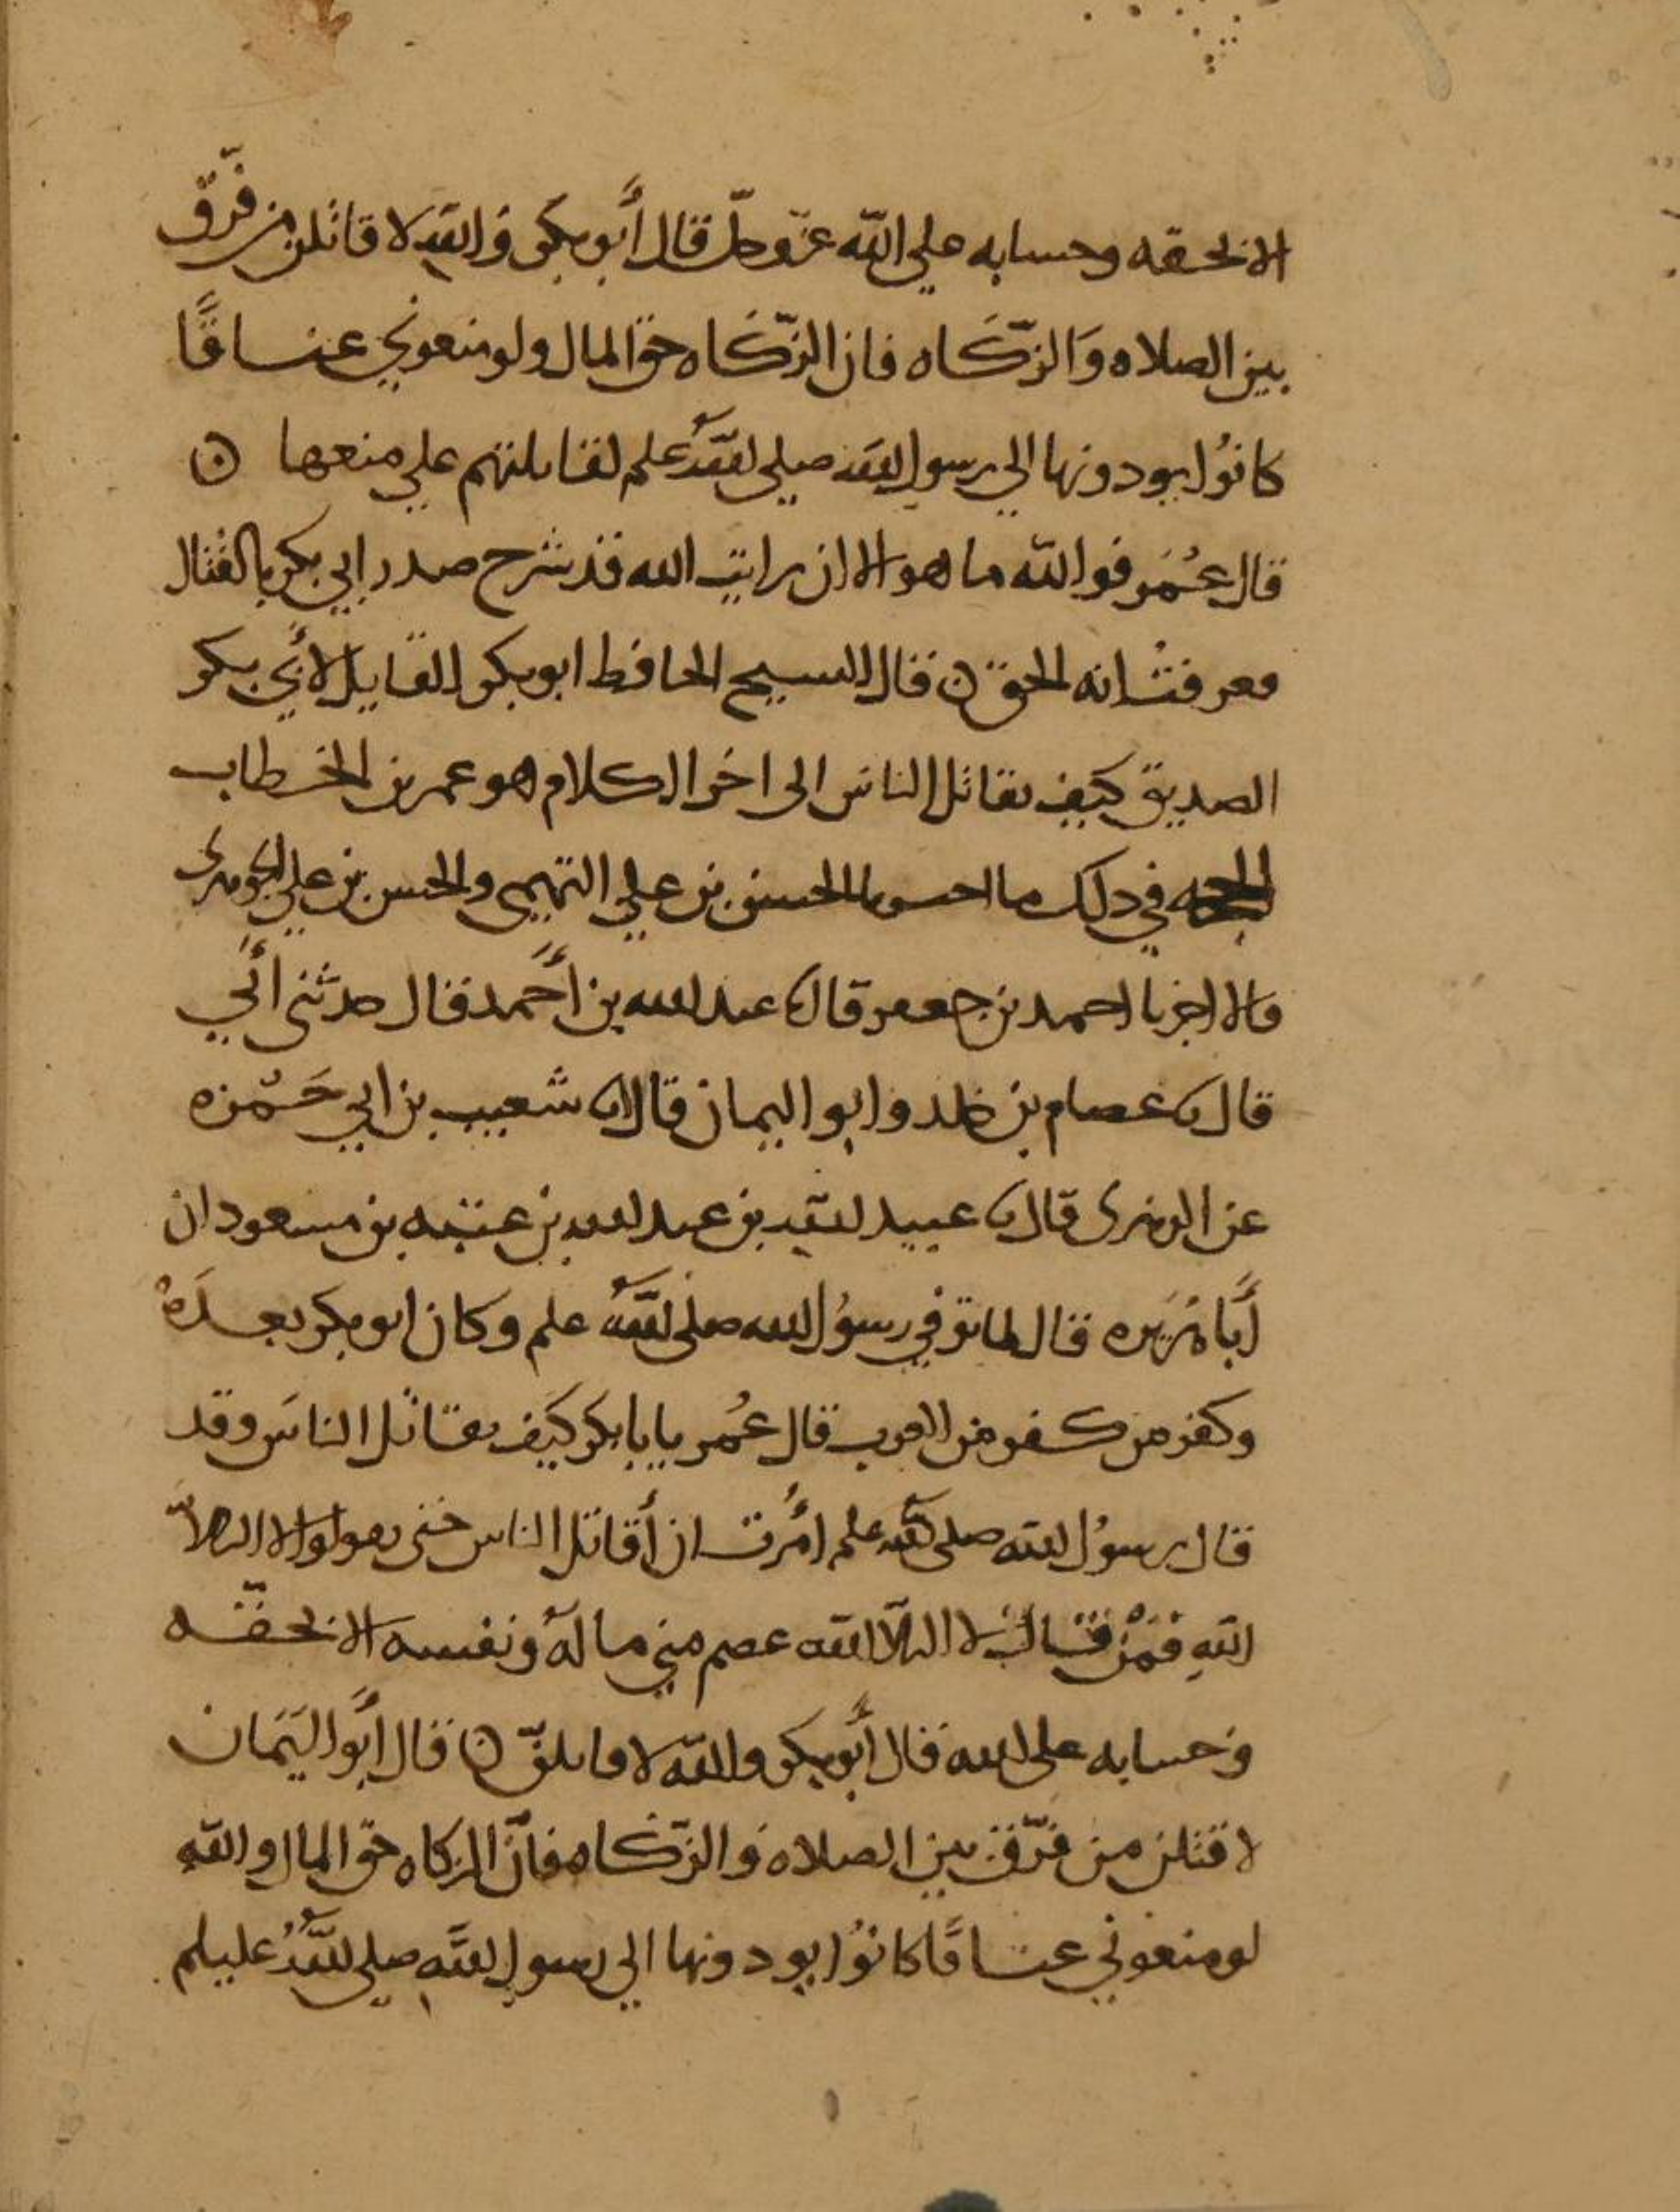 الا بحقه وحسابه على الله عز وجل قال أبو بكر والله لا قاتلن من فرّق
بين الصلاه والزكاه فان الزكاه حق المال ولو منعوني عناقًا
كانوا يودونها الي رسول الله صلى الله علم لقاتلتهم علي منعها ن
قال عُمَر فوالله ما هو الا ان رايت الله قد شرح صدر ابي بكر بالقتال
فعرفت انه الحق ن قال الشيخ الحافظ ابو بكر القايل لأبي بكر
الصديق كيف تقاتل الناس الى اخر الكلام هو عمر بن الخطاب
الحجه في ذلك ما الحسن بن علي التميمي والحسن بن علي الجوهرى
قالا اخبرنا احمد بن جعفر قال نا عبد الله بن أحمد قال حدثني أبي
قال نا عصام بن خلد وابو اليمان قالا نا شعيب بن ابي حَمْزه
عن الزهرى قال نا عبيد الله بن عبد الله بن عتبه بن مسعود ان
أَبا هُرَيره قال لما توفي رسوُل الله صلى الله علم وكان ابو بكر بعدَهُ
وكفر من كفر من العرب قال عُمر يا بابكر كيَف تقاتل الناسَ وقد
قال رسوُل الله صلى الله علم اُمُرت ان أُقاتل الناس حتى يقولوا لا اله الاّ
اللهِ فمَنْ قال لا اله الاّ الله عصم مني ماله ونفسه الا بحقّه
وحسابه على الله قال أبو بكر والله لاقاتلنّ ن قال أبَو اليَمَان
لا قتلن من فرّق بين الصلاه والزّكاه فانّ الزكاه حق المال والله
لو منعوني عناقًا كانوُا يودونها الي رسول الله صلي اللهُ عليلم